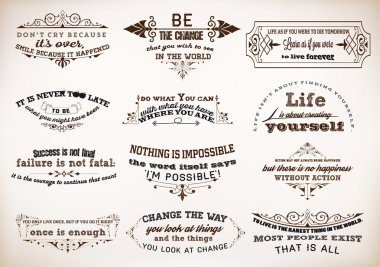 DON'T CRY BECAUSE
it's over,
SMILE BECAUSE IT HAPPENED
BE
THE CHANGE
that you wish to see
IN THE WORLD
LIFE AS IF YOU WERE TO DIE TOMORROW.
Learn as if you were
to live forever
IT IS NEVER TOO LATE
TO BE
DO WHAT YOU CAN
with what you have
WHERE YOU ARE
LIFE ISN'T ABOUT FINDING YOURSELF.
Life
is about creating
yourself
Success is not final
failure is not fatal:
it is the courage to continue that count
NOTHING IS IMPOSSIBLE
the word itself says
I'M POSSIBLE!
ACTION MAY NOT ALWAYS BRING HAPPINESS
but there is no happiness
WITHOUT ACTION
YOU ONLY LIVE ONCE, BUT IF YOU DO IT RIGHT
once is enough
CHANGE THE WAY
you look at things
and the things
YOU LOOK AT CHANGE
TO LIVE IS THE RAREST THING IN THE WORLD.
MOST PEOPLE EXIST
THAT IS ALL